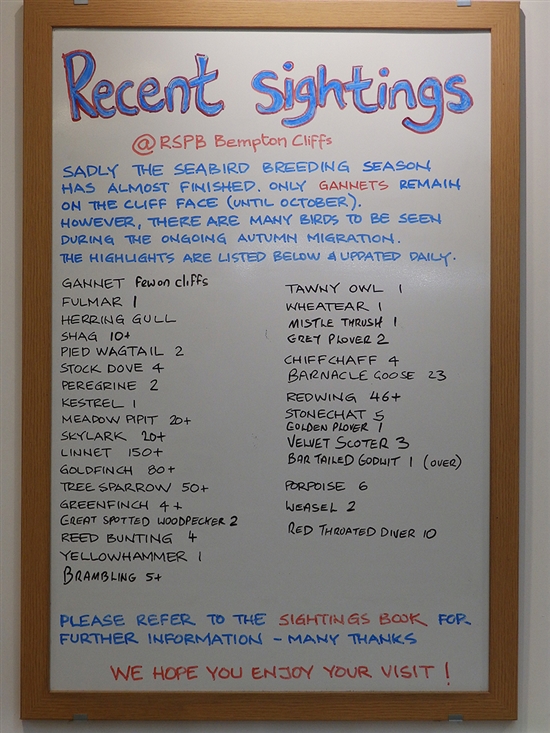 Recent Sightings
@ RSPB Bempton Cliffs
SADLY THE SEABIRD BREEDING SEASON
HAS ALMOST FINISHED. ONLY GANNETS REMAIN
ON THE CLIFF FACE (UNTIL OCTOBER).
HOWEVER, THERE ARE MANY BIRDS TO BE SEEN
DURING THE ONGOING AUTUMN MIGRATION.
THE HIGHLIGHTS ARE LISTED BELOW & UPDATED DAILY.
GANNET few on cliffs
FULMAR 1
HERRING GULL
SHAG 10+
PIED WAGTAIL 2
STOCK DOVE 4
PEREGRINE 2
KESTREL 1
MEADOW PIPIT 20+
SKYLARK 20+
LINNET 150+
GOLDFINCH 80+
TREE SPARROW 50+
GREENFINCH 4+
GREAT SPOTTED WOODPECKER 2
REED BUNTING 4
YELLOWHAMMER 1
BRAMBLING 5+
TAWNY OWL 1
WHEATEAR 1
MISTLE THRUSH 1
GREY PLOVER 2
CHIFFCHAFF 4
BARNACLE GOOSE 23
REDWING 46+
STONECHAT 5
GOLDEN PLOVER 1
VELVET SCOTER 3
BAR TAILED GODWIT 1 (OVER)
PORPOISE 6
WEASEL 2
RED THROATED DIVER 10
PLEASE REFER TO THE SIGHTINGS BOOK FOR
FURTHER INFORMATION - MANY THANKS
WE HOPE YOU ENJOY YOUR VISIT !